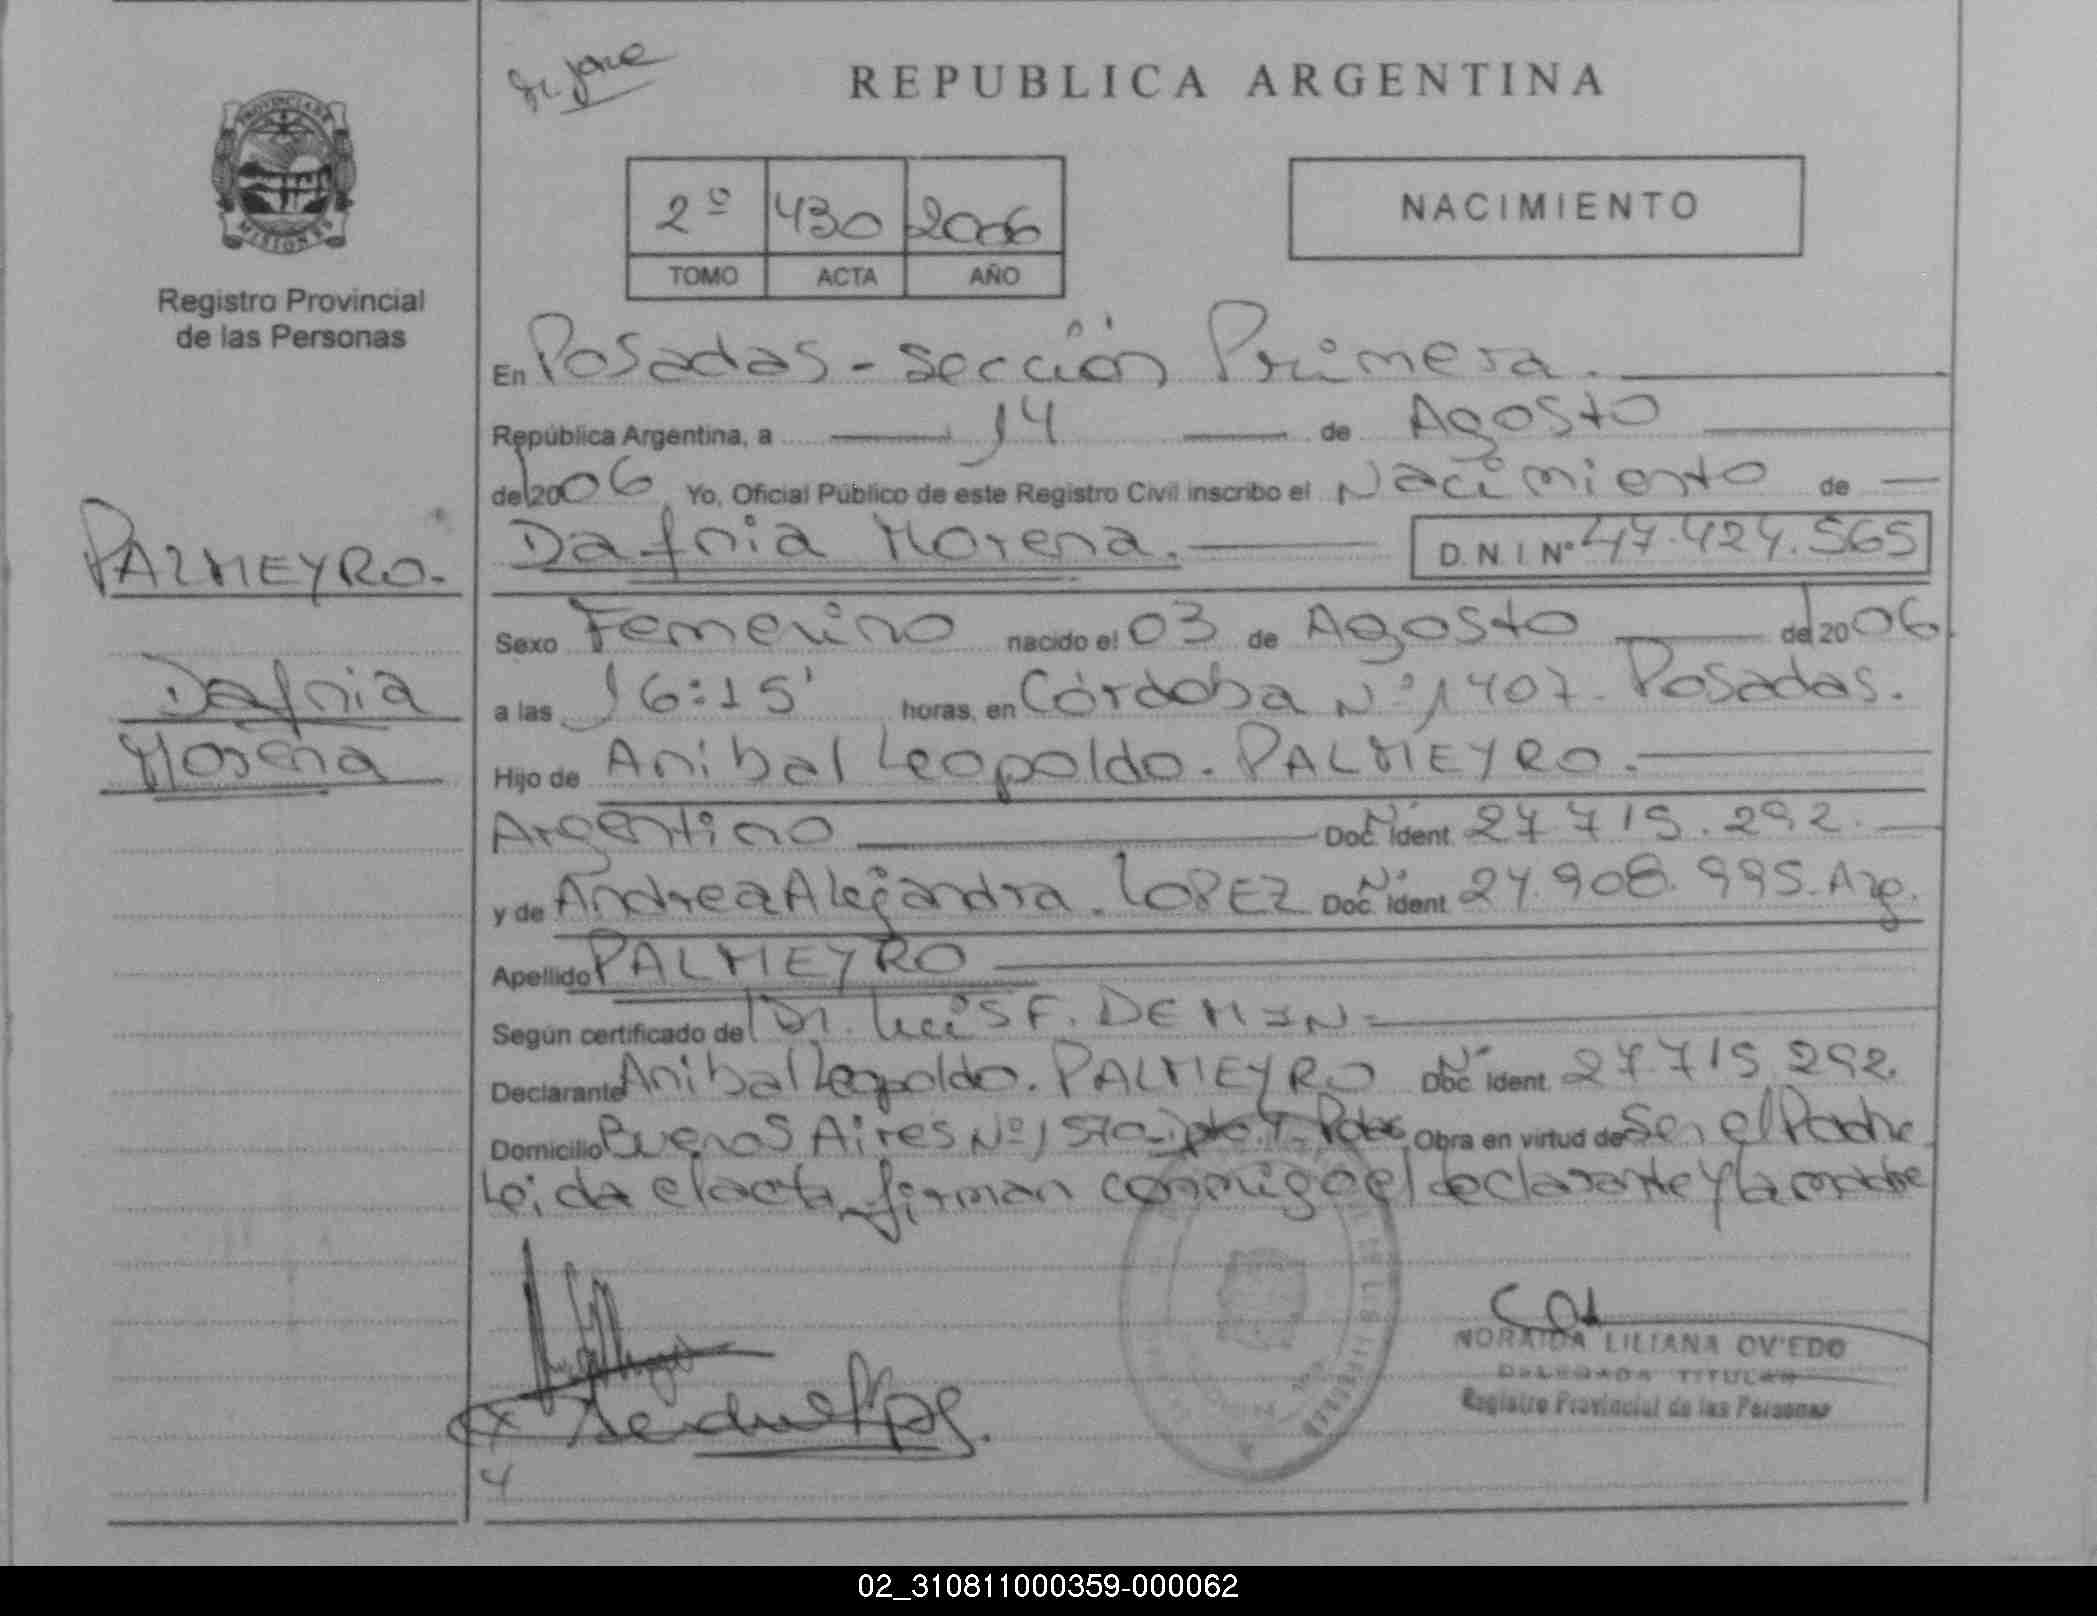 REPUBLICA ARGENTINA
PROVINCIA DE
MISIONES
Registro Provincial
de las Personas
2º 430 2006
TOMO ACTA AÑO
NACIMIENTO
En Posadas - sección Primera.
República Argentina, a 14 de Agosto
del 2006 Yo, Oficial Público de este Registro Civil inscribo el Nacimiento de
Dafnia Morena. D.N.I Nº 47.424.565
PALMEYRO.
Dafnia
Morena
Sexo Femenino nacido el 03 de Agosto del 2006
a las 16:15' horas, en Córdoba Nº 1407 - Posadas.
Hijo de Anibal Leopoldo. PALMEYRO.
Argentino Doc. Nº Ident. 27 715.292.
y de Andrea Alejandra. LOPEZ Doc. Nº Ident. 24.908.995. Arg.
Apellido PALMEYRO
Según certificado de Dr. Luis F. DEMIN
Declarante Anibal Leopoldo. PALMEYRO Doc. Nº Ident. 27 715 292.
Domicilio Buenos Aires Nº 1570 Obra en virtud de Ser el Padre
Leida el acta, firman conmigo el declarante y la madre
NORAIDA LILIANA OVIEDO
DELEGADA TITULAR
Registro Provincial de las Personas
02_310811000359-000062